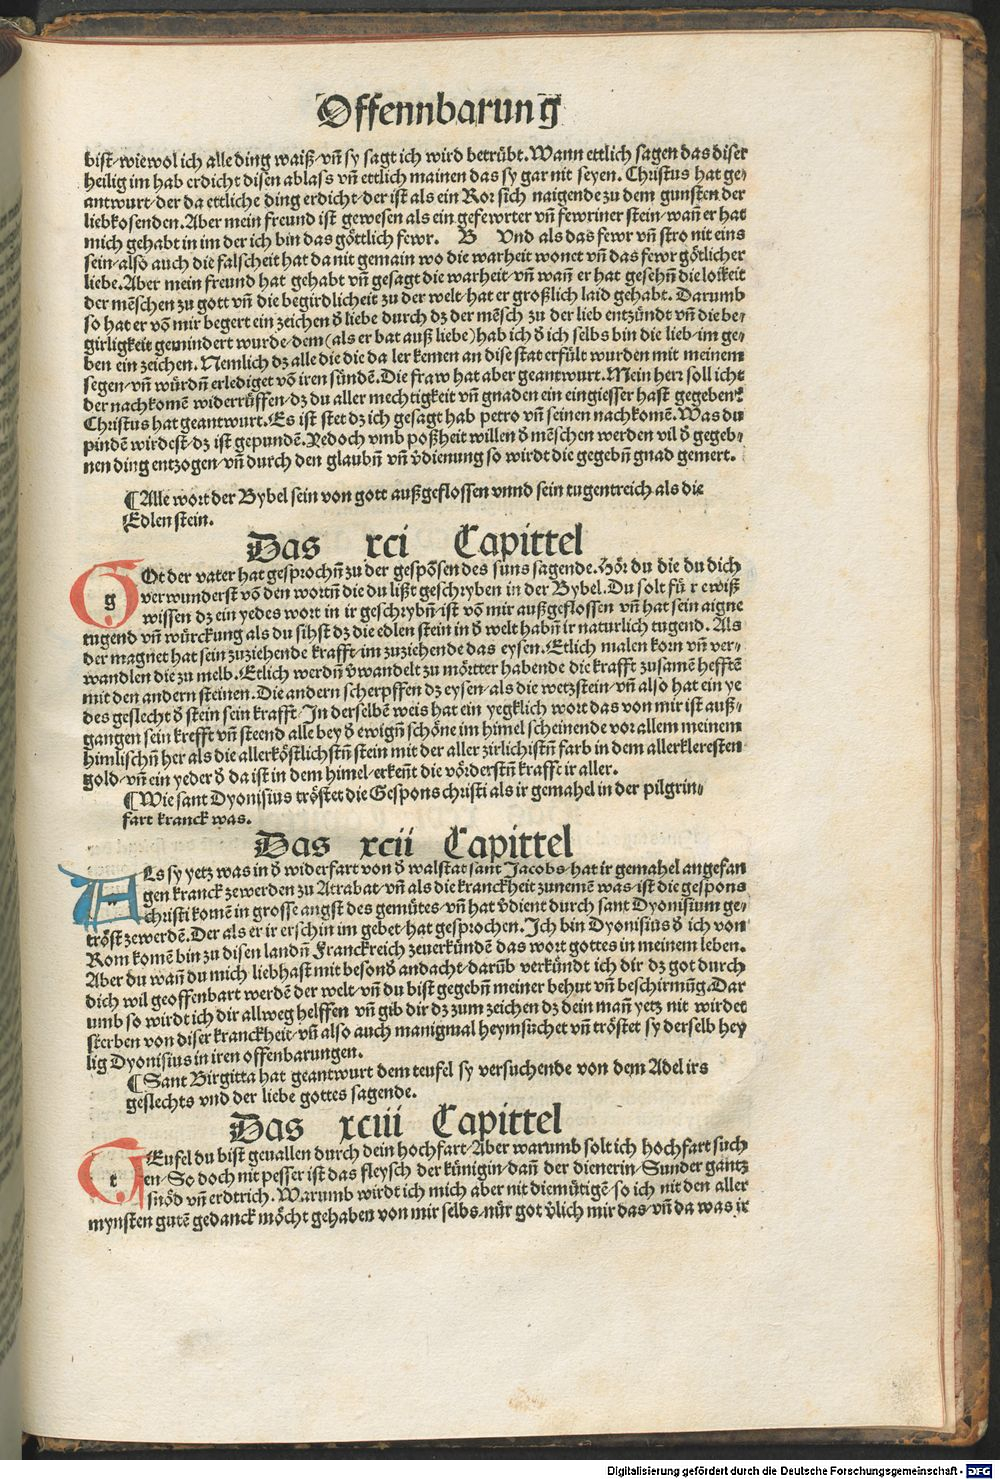 Offennbarung
bist/wiewol ich alle ding waiß/vn̄ sy sagt ich wird betrůbt. Wann ettlich sagen das diser
heilig im hab erdicht disen ablass vn̄ ettlich mainen das sy gar nit seyen. Christus hat ge⸗
antwurt/der da ettliche ding erdicht/der ist als ein Ror sich naigende zu dem gunsten der
liebkosenden. Aber mein freund ist gewesen als ein gefewrter vn̄ fewriner stein/wan̄ er hat
mich gehabt in im der ich bin das göttlich fewr. B Vnd als das fewr vn̄ stro nit eins
sein/also auch die falscheit hat da nit gemain wo die warheit wonet vn̄ das fewr götlicher
liebe. Aber mein freund hat gehabt vn̄ gesagt die warheit/vn̄ wan̄ er hat gesehn̄ die loikeit
der mēschen zu gott vn̄ die begirdlicheit zu der welt/hat er großlich laid gehabt. Darumb
so hat er vō mir begert ein zeichen d̄ liebe durch dz der mēsch zu der lieb entzündt vn̄ die be⸗
girligkeit gemindert wurde/dem (als er bat auß liebe) hab ich d̄ ich selbs bin die lieb/im ge⸗
ben ein zeichen. Nemlich dz alle die die da ler kemen an dise stat erfült wurden mit meinem
segen/vn̄ würdn̄ erlediget vō iren sündē. Die fraw hat aber geantwurt. Mein herr soll icht
der nachkomē widerrůffen/dz du aller mechtigkeit vn̄ gnaden ein eingiesser hast gegeben?
Christus hat geantwurt. Es ist stet dz ich gesagt hab petro vn̄ seinen nachkomē. Was du
pindē wirdest/dz ist gepundē. Yedoch vmb poßheit willen d̄ mēschen werden vil d̄ gegeb⸗
nen ding entzogen/vn̄ durch den glaubn̄ vn̄ v̄dienung so wirdt die gegebn̄ gnad gemert.
¶ Alle wort der Bybel sein von gott außgeflossen vnnd sein tugentreich als die
Edlen stein.
Das xci Capittel
g Ot der vater hat gesprochn̄ zu der gespōsen des suns sagende. Hör du die du dich
verwunderst vō den wortn̄ die du lißt geschryben in der Bybel. Du solt fůr ewiß
wissen dz ein yedes wort in ir geschrybn̄/ist vō mir außgeflossen vn̄ hat sein aigne
tugend vn̄ würckung als du sihst dz die edlen stein in d̄ welt habn̄ ir naturlich tugend. Als
der magnet hat sein zuziehende krafft/im zuziehende das eysen. Etlich malen korn vn̄ ver⸗
wandlen die zu melb. Etlich werdn̄ v̄wandelt zu mörtter habende die krafft zusamē hefftē
mit den andern steinen. Die andern scherpffen dz eysen/als die wetzstein/vn̄ also hat ein ye
des geslecht d̄ stein sein krafft/In derselbē weis hat ein yegklich wort das von mir ist auß⸗
gangen sein krefft vn̄ steend alle bey d̄ ewign̄ schöne im himel scheinende vor allem meinem
himlischn̄ her als die allerköstlichstn̄ stein mit der aller zirlichistn̄ farb in dem allerkleresten
gold/vn̄ ein yeder d̄ da ist in dem himel/erken̄t die vörderstn̄ krafft ir aller.
¶ Wie sant Dyonisius tröstet die Gespons christi als ir gemahel in der pilgrin⸗
fart kranck was.
Das xcii Capittel
ALs sy yetz was in d̄ widerfart von d̄ walstat sant Jacobs/hat ir gemahel angefan
gen kranck zewerden zu Atrabat/vn̄ als die kranckheit zunemē was/ist die gespons
christi komē in grosse angst des gemůtes/vn̄ hat v̄dient durch sant Dyonisium ge⸗
tröst zewerdē. Der als er ir erschin im gebet/hat gesprochen. Ich bin Dyonisius d̄ ich von
Rom komē bin zu disen landn̄ Franckreich zeuerkündē das wort gottes in meinem leben.
Aber du wan̄ du mich liebhast mit besond̄ andacht/darūb verkündt ich dir dz got durch
dich wil geoffenbart werdē der welt/vn̄ du bist gegebn̄ meiner behut vn̄ beschirmūg. Dar
umb so wirdt ich dir allweg helffen vn̄ gib dir dz zum zeichen dz dein man̄ yetz nit wirdet
sterben von diser kranckheit/vn̄ also auch manigmal heymsuchet vn̄ tröstet sy derselb hey
lig Dyonisius in iren offenbarungen.
¶ Sant Birgitta hat geantwurt dem teufel sy versuchende von dem Adel irs
geslechts vnd der liebe gottes sagende.
Das xciii Capittel
t Eufel du bist geuallen durch dein hochfart/Aber warumb solt ich hochfart such
en/So doch nit pesser ist das fleysch der künigin/dan̄ der dienerin/Sunder gantz
snöd vn̄ erdtrich. Warumb wirdt ich mich aber nit diemütigē/so ich nit den aller
mynsten gutē gedanck möcht gehaben von mir selbs/nůr got v̄lich mir das/vn̄ da was ir
Digitalisierung gefördert durch die Deutsche Forschungsgemeinschaft - DFG